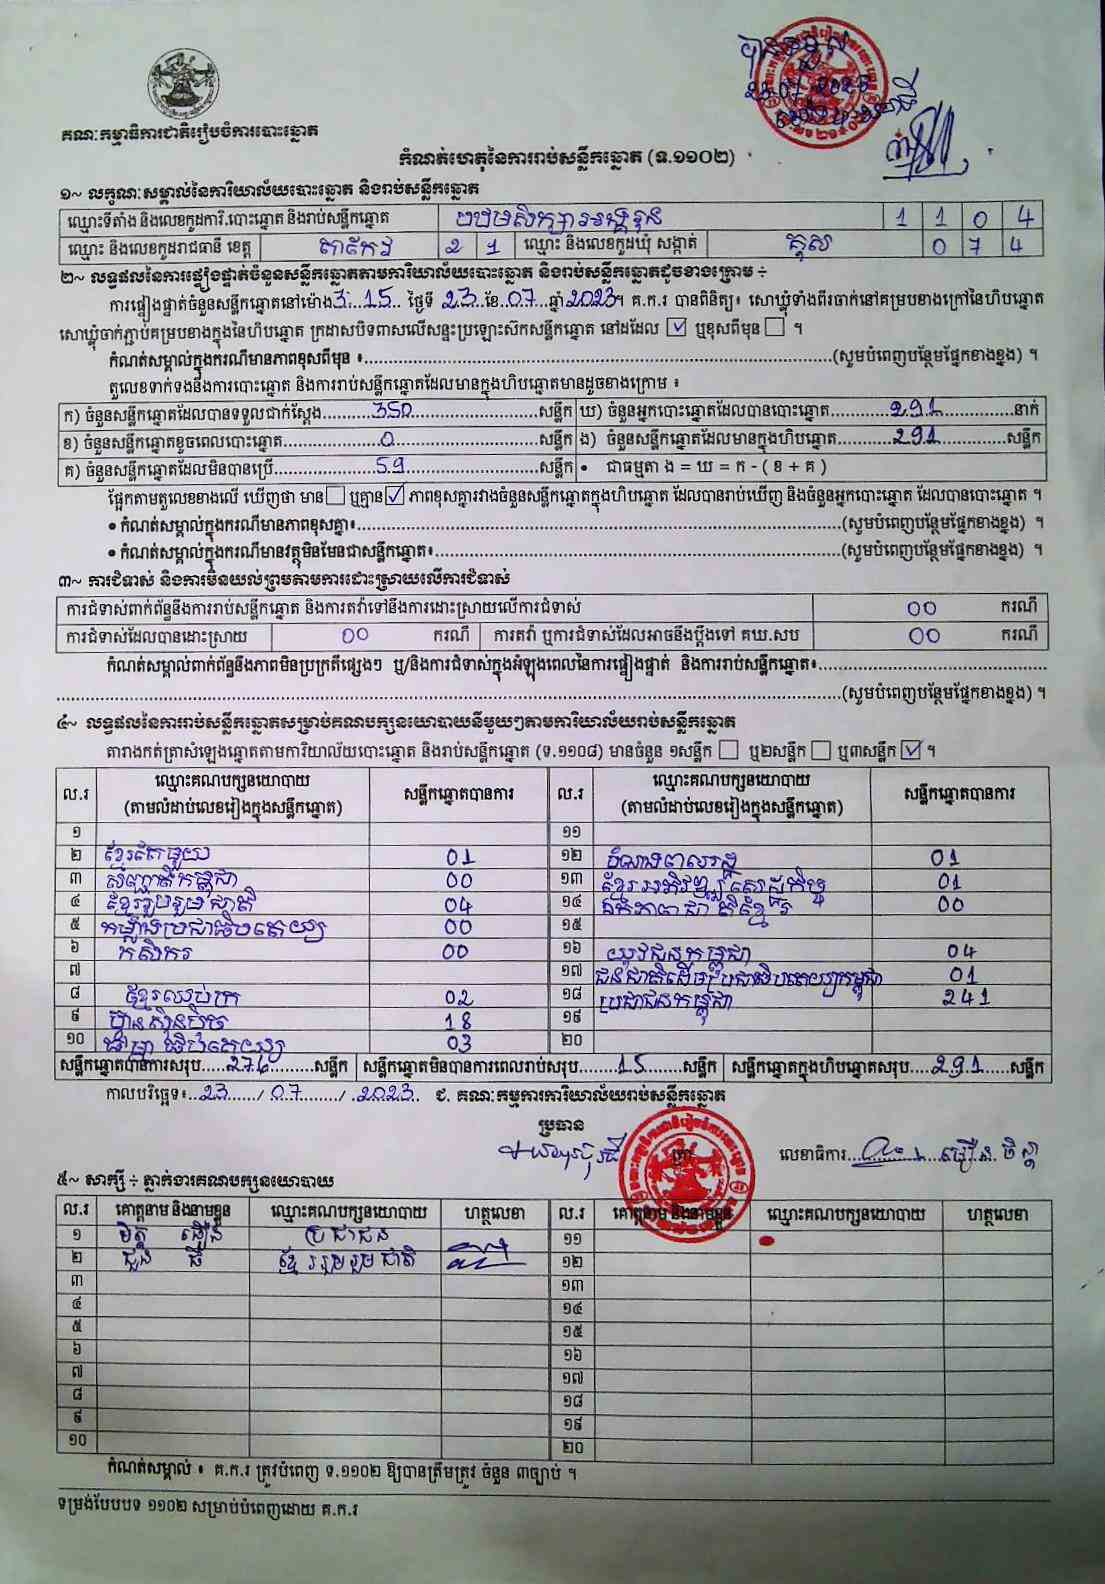 គណៈកម្មាធិការជាតិរៀបចំការបោះឆ្នោត
កំណត់ហេតុនៃការរាប់សន្លឹកឆ្នោត (ទ.១១០២)
១~ លក្ខណៈសម្គាល់នៃការិយាល័យបោះឆ្នោត និងរាប់សន្លឹកឆ្នោត
ឈ្មោះទីតាំង និងលេខកូដការិ.បោះឆ្នោត និងរាប់សន្លឹកឆ្នោត បឋមសិក្សាអង្គរុន 1 1 0 4
ឈ្មោះ និងលេខកូដរាជធានី ខេត្ត តាកែវ 2 1 ឈ្មោះ និងលេខកូដឃុំ សង្កាត់ គុស 0 7 4
២~ លទ្ធផលនៃការផ្ទៀងផ្ទាត់ចំនួនសន្លឹកឆ្នោតតាមការិយាល័យបោះឆ្នោត និងរាប់សន្លឹកឆ្នោតដូចខាងក្រោម ÷
ការផ្ទៀងផ្ទាត់ចំនួនសន្លឹកឆ្នោតនៅម៉ោង 3:15 ថ្ងៃទី 23 ខែ 07 ឆ្នាំ 2023។ គ.ក.រ បានពិនិត្យ៖ សោឃ្លុំទាំងពីរចាក់នៅគម្របខាងក្រៅនៃហិបឆ្នោត
សោឃ្លុំចាក់ភ្ជាប់គម្របខាងក្នុងនៃហិបឆ្នោត ក្រដាសបិទពាសលើសន្ទះប្រឡោះស៊កសន្លឹកឆ្នោត នៅដដែល ☑ ឬខុសពីមុន ☐ ។
កំណត់សម្គាល់ក្នុងករណីមានភាពខុសពីមុន ៖ (សូមបំពេញបន្ថែមផ្នែកខាងខ្នង) ។
តួលេខទាក់ទងនឹងការបោះឆ្នោត និងការរាប់សន្លឹកឆ្នោតដែលមានក្នុងហិបឆ្នោតមានដូចខាងក្រោម ៖
ក) ចំនួនសន្លឹកឆ្នោតដែលបានទទួលជាក់ស្តែង 350 សន្លឹក ឃ) ចំនួនអ្នកបោះឆ្នោតដែលបានបោះឆ្នោត 291 នាក់
ខ) ចំនួនសន្លឹកឆ្នោតខូចពេលបោះឆ្នោត 0 សន្លឹក ង) ចំនួនសន្លឹកឆ្នោតដែលមានក្នុងហិបឆ្នោត 291 សន្លឹក
គ) ចំនួនសន្លឹកឆ្នោតដែលមិនបានប្រើ 59 សន្លឹក • ជាធម្មតា ង = ឃ = ក - ( ខ + គ )
ផ្អែកតាមតួលេខខាងលើ ឃើញថា មាន ☐ ឬគ្មាន ☑ ភាពខុសគ្នារវាងចំនួនសន្លឹកឆ្នោតក្នុងហិបឆ្នោត ដែលបានរាប់ឃើញ និងចំនួនអ្នកបោះឆ្នោត ដែលបានបោះឆ្នោត ។
• កំណត់សម្គាល់ក្នុងករណីមានភាពខុសគ្នា៖ (សូមបំពេញបន្ថែមផ្នែកខាងខ្នង) ។
• កំណត់សម្គាល់ក្នុងករណីមានវត្ថុមិនមែនជាសន្លឹកឆ្នោត៖ (សូមបំពេញបន្ថែមផ្នែកខាងខ្នង) ។
៣~ ការជំទាស់ និងការមិនយល់ព្រមតាមការដោះស្រាយលើការជំទាស់
ការជំទាស់ពាក់ព័ន្ធនឹងការរាប់សន្លឹកឆ្នោត និងការតវ៉ាទៅនឹងការដោះស្រាយលើការជំទាស់ 00 ករណី
ការជំទាស់ដែលបានដោះស្រាយ 00 ករណី ការតវ៉ា ឬការជំទាស់ដែលអាចនឹងប្តឹងទៅ គឃ.សប 00 ករណី
កំណត់សម្គាល់ពាក់ព័ន្ធនឹងភាពមិនប្រក្រតីផ្សេងៗ ឬ/និងការជំទាស់ក្នុងអំឡុងពេលនៃការផ្ទៀងផ្ទាត់ និងការរាប់សន្លឹកឆ្នោត៖
(សូមបំពេញបន្ថែមផ្នែកខាងខ្នង) ។
៤~ លទ្ធផលនៃការរាប់សន្លឹកឆ្នោតសម្រាប់គណបក្សនយោបាយនីមួយៗតាមការិយាល័យរាប់សន្លឹកឆ្នោត
តារាងកត់ត្រាសំឡេងឆ្នោតតាមការិយាល័យបោះឆ្នោត និងរាប់សន្លឹកឆ្នោត (ទ.១១០៨) មានចំនួន ១សន្លឹក ☐ ឬ២សន្លឹក ☐ ឬ៣សន្លឹក ☑ ។
ល.រ ឈ្មោះគណបក្សនយោបាយ (តាមលំដាប់លេខរៀងក្នុងសន្លឹកឆ្នោត) សន្លឹកឆ្នោតបានការ ល.រ ឈ្មោះគណបក្សនយោបាយ (តាមលំដាប់លេខរៀងក្នុងសន្លឹកឆ្នោត) សន្លឹកឆ្នោតបានការ
១ ១១
២ ខ្មែរតែមួយ 01 ១២ ដំណាងពលរដ្ឋ 01
៣ សញ្ជាតិកម្ពុជា 00 ១៣ ខ្មែរអភិវឌ្ឍន៍សេដ្ឋកិច្ច 01
៤ ខ្មែររួបរួមជាតិ 04 ១៤ ឯកភាពជាតិខ្មែរ 00
៥ កម្លាំងប្រជាធិបតេយ្យ 00 ១៥
៦ កសិករ 00 ១៦ យុវជនកម្ពុជា 04
៧ ១៧ ជនជាតិដើមប្រជាធិបតេយ្យកម្ពុជា 01
៨ ខ្មែរឈប់ក្រ 02 ១៨ ប្រជាជនកម្ពុជា 241
៩ ហ្វ៊ុនស៊ិនប៉ិច 18 ១៩
១០ ធម្មាធិបតេយ្យ 03 ២០
សន្លឹកឆ្នោតបានការសរុប 276 សន្លឹក សន្លឹកឆ្នោតមិនបានការពេលរាប់សរុប 15 សន្លឹក សន្លឹកឆ្នោតក្នុងហិបឆ្នោតសរុប 291 សន្លឹក
កាលបរិច្ឆេទ៖ 23 / 07 / 2023 ជ. គណៈកម្មការការិយាល័យរាប់សន្លឹកឆ្នោត
ប្រធាន
លេខាធិការ
៥~ សាក្សី ÷ ភ្នាក់ងារគណបក្សនយោបាយ
ល.រ គោត្តនាម និងនាមខ្លួន ឈ្មោះគណបក្សនយោបាយ ហត្ថលេខា ល.រ គោត្តនាម និងនាមខ្លួន ឈ្មោះគណបក្សនយោបាយ ហត្ថលេខា
១ ម៉ិត ធឿន ប្រជាជន ១១
២ ជួន ធី ខ្មែររួបរួមជាតិ ១២
៣ ១៣
៤ ១៤
៥ ១៥
៦ ១៦
៧ ១៧
៨ ១៨
៩ ១៩
១០ ២០
កំណត់សម្គាល់ ៖ គ.ក.រ ត្រូវបំពេញ ទ.១១០២ ឱ្យបានត្រឹមត្រូវ ចំនួន ៣ច្បាប់ ។
ទម្រង់បែបបទ ១១០២ សម្រាប់បំពេញដោយ គ.ក.រ